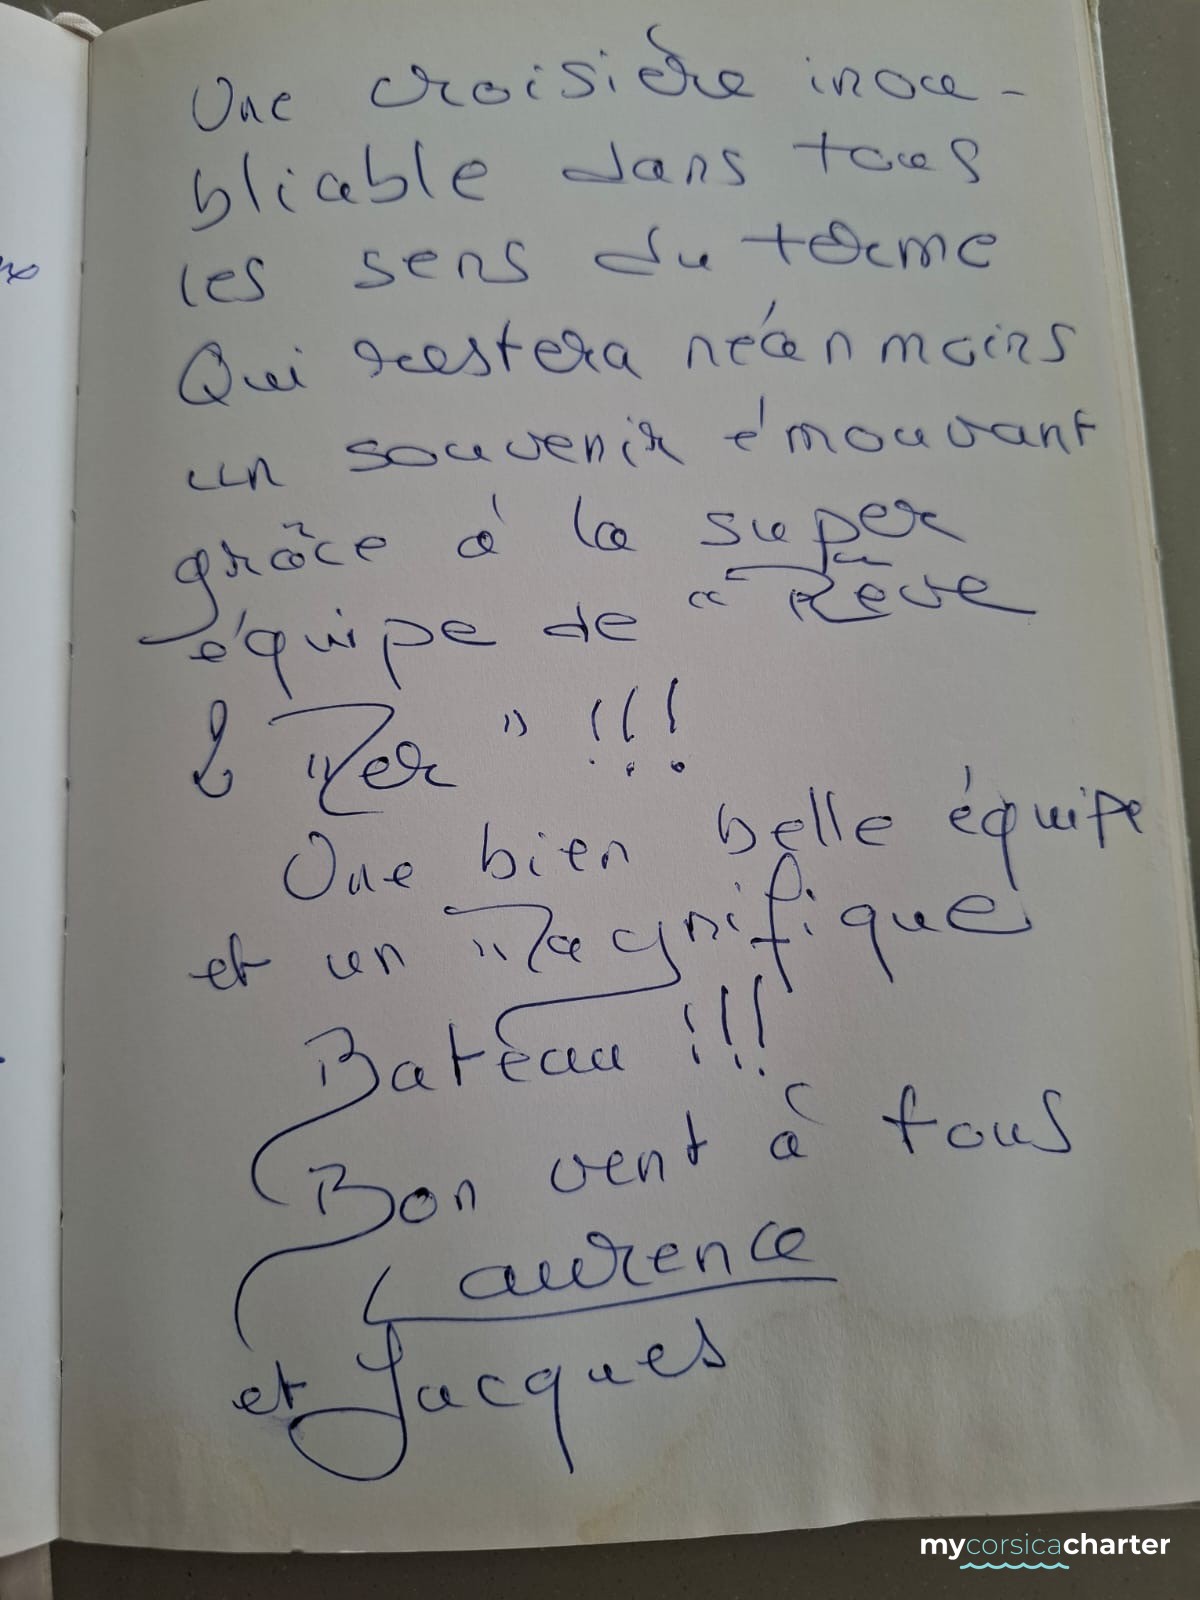 Une croisière inou-
bliable dans tous
les sens du terme
Qui restera néanmoins
un souvenir émouvant
grâce à la super
équipe de "Rêve
2 Mer" !!!
Une bien belle équipe
et un Magnifique
Bateau !!!
Bon vent à tous
Laurence
et Jacques
mycorsicacharter